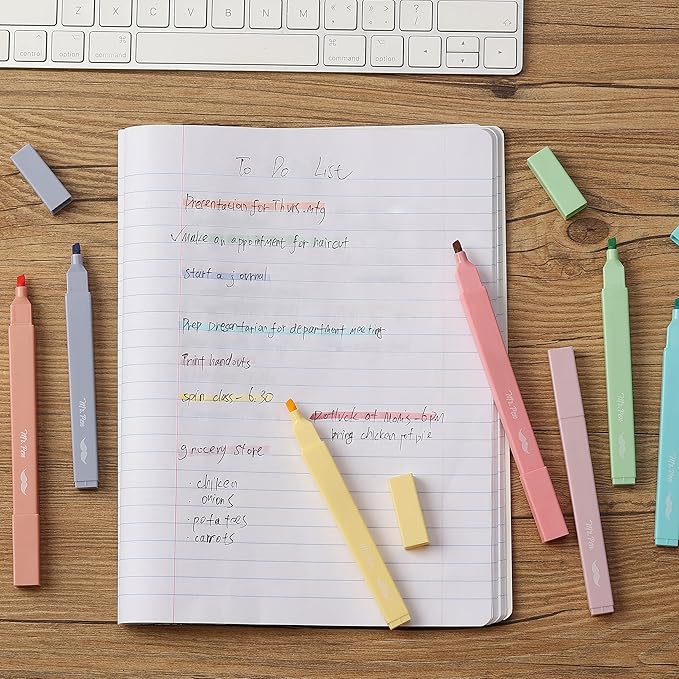 control
option
command
command
option
To Do List
Presentation for Thurs. mtg
✓Make an appointment for haircut
Start a journal
Prep presentation for department meeting
Print handouts
spin class - 6:30
Potluck at Moms - 6pm
bring chicken pot pie
grocery store
· chicken
· onions
· potatoes
· carrots
Mr. Pen
Mr. Pen
Mr. Pen
Mr. Pen
Mr. Pen
Mr. Pen